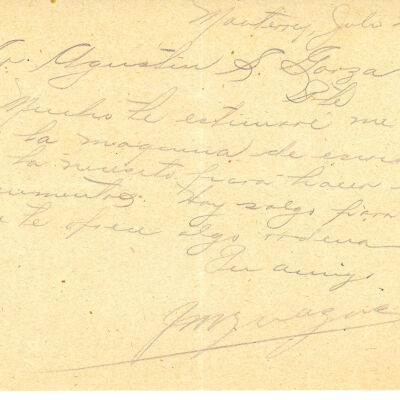 Monterrey, Julio
Sr. Agustin S. Garza
Pte
Mucho te estimaré me
la maquina de escri
la necesito para hacer
cumentos. Hoy salgo para
te ofrece algo ordena
Tu amigo